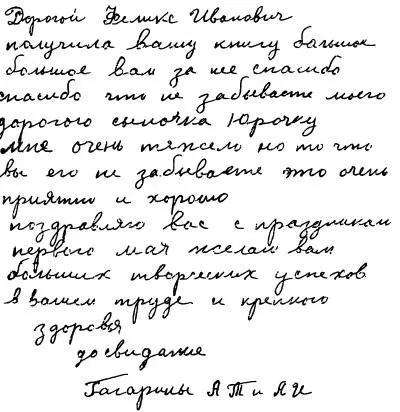 Дорогой Феликс Иванович
получила вашу книгу большое
большое вам за нее спасибо
спасибо что не забываете моего
дорогого сыночка Юрочку
мне очень тяжело но то что
вы его не забываете это очень
приятно и хорошо
поздравляю вас с праздником
первого мая желаю вам
больших творческих успехов
в вашем труде и крепкого
здоровья
до свидание
Гагарины А Т и А И